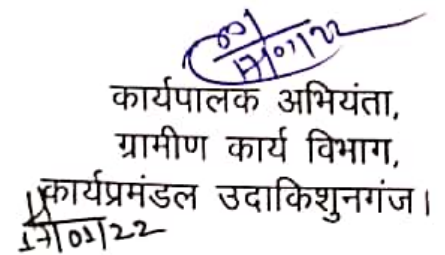 17/01/22
कार्यपालक अभियंता,
ग्रामीण कार्य विभाग,
कार्यप्रमंडल उदाकिशुनगंज।
17/01/22